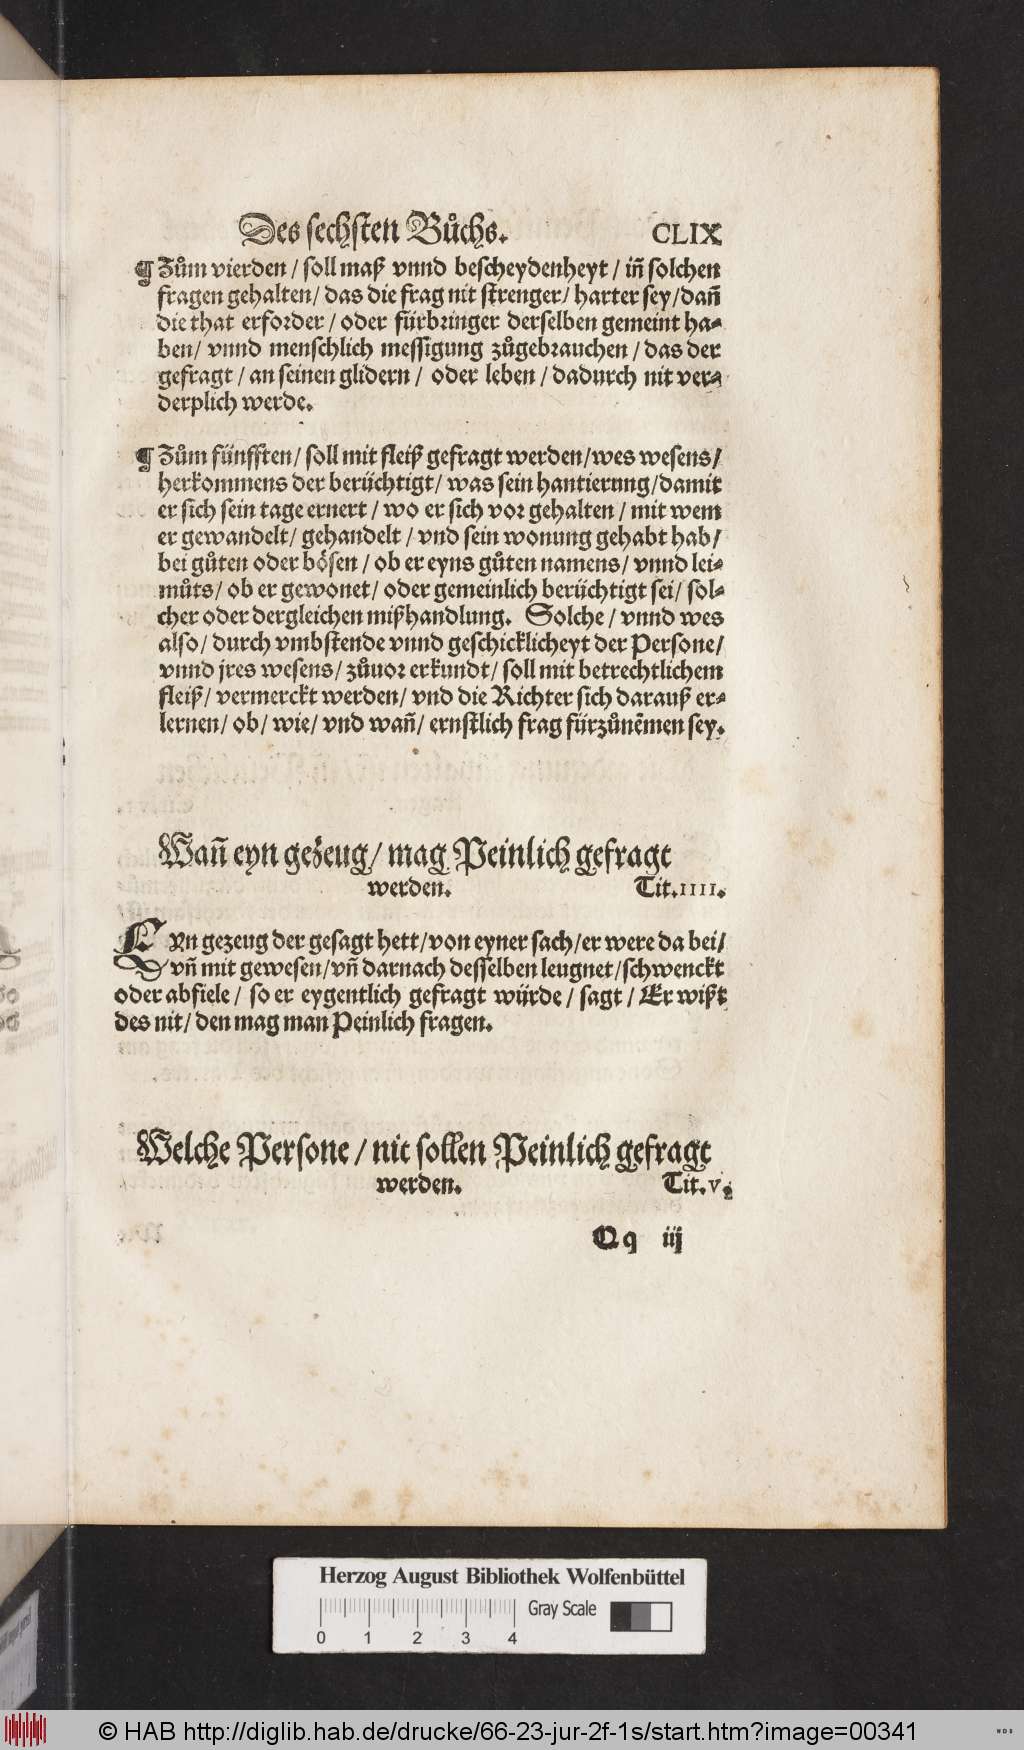 Des sechsten Bůchs. CLIX
¶ Zům vierden / soll maß vnnd bescheydenheyt / iñ solchen
fragen gehalten / das die frag nit strenger / harter sey / dañ
die that erforder / oder fürbringer derselben gemeint ha-
ben / vnnd menschlich messigung zůgebrauchen / das der
gefragt / an seinen glidern / oder leben / dadurch nit ver-
derplich werde.
¶ Zům fünfften / soll mit fleiß gefragt werden / wes wesens /
herkommens der berüchtigt / was sein hantierung / damit
er sich sein tage ernert / wo er sich vor gehalten / mit wem
er gewandelt / gehandelt / vnd sein wonung gehabt hab /
bei gůten oder bösen / ob er eyns gůten namens / vnnd lei-
můts / ob er gewonet / oder gemeinlich berüchtigt sei / sol-
cher oder dergleichen mißhandlung. Solche / vnnd wes
also / durch vmbstende vnnd geschicklicheyt der Persone /
vnnd jres wesens / zůuor erkundt / soll mit betrechtlichem
fleiß / vermerckt werden / vnd die Richter sich darauß er-
lernen / ob / wie / vnd wañ / ernstlich frag fürzůnẽmen sey.
Wañ eyn gezeug / mag Peinlich gefragt
werden. Tit. IIII.
EYn gezeug der gesagt hett / von eyner sach / er were da bei /
vñ mit gewesen / vñ darnach desselben leugnet / schwenckt
oder abfiele / so er eygentlich gefragt würde / sagt / Er wißt
des nit / den mag man Peinlich fragen.
Welche Persone / nit sollen Peinlich gefragt
werden. Tit. V.
Qq iij
Herzog August Bibliothek Wolfenbüttel
Gray Scale
0 1 2 3 4
© HAB http://diglib.hab.de/drucke/66-23-jur-2f-1s/start.htm?image=00341